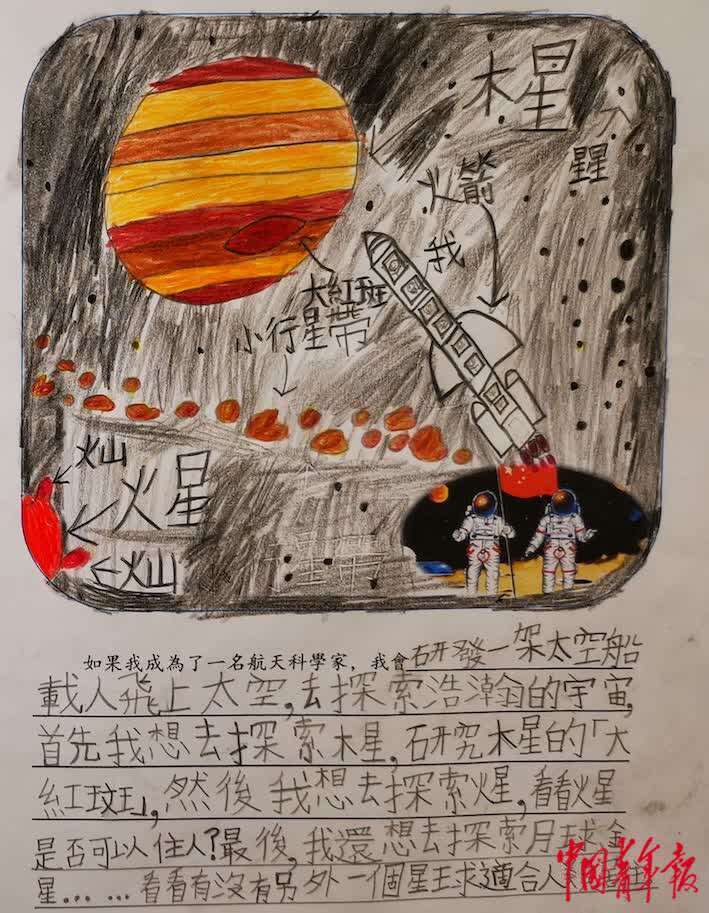 木星
星
火箭
我
大紅斑
小行星帶
火山
火星
火山
如果我成為了一名航天科學家，我會研發一架太空船
載人飛上太空，去探索浩瀚的宇宙，
首先我想去探索木星，研究木星的「大
紅斑」，然後我想去探索火星，看看火星
是否可以住人？最後，我還想去探索月球、金
星……看看有沒有另外一個星球適合人
中国青年报